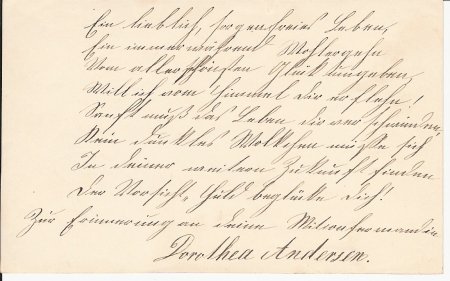 Ein lieblich, sorgenfreies Leben,
Ein immerwährend Wohlergehn
Vom allerschönsten Glück umgeben,
Will ich vom Himmel dir erflehn!
Sanft muß das Leben dir verschwinden,
Kein dunkles Wölkchen müsse sich
In deiner weitern Zukunft finden
Der Vorsicht, Huld beglücke dich!
Zur Erinnerung an deine Mitconfirmandin
Dorothea Andersen.